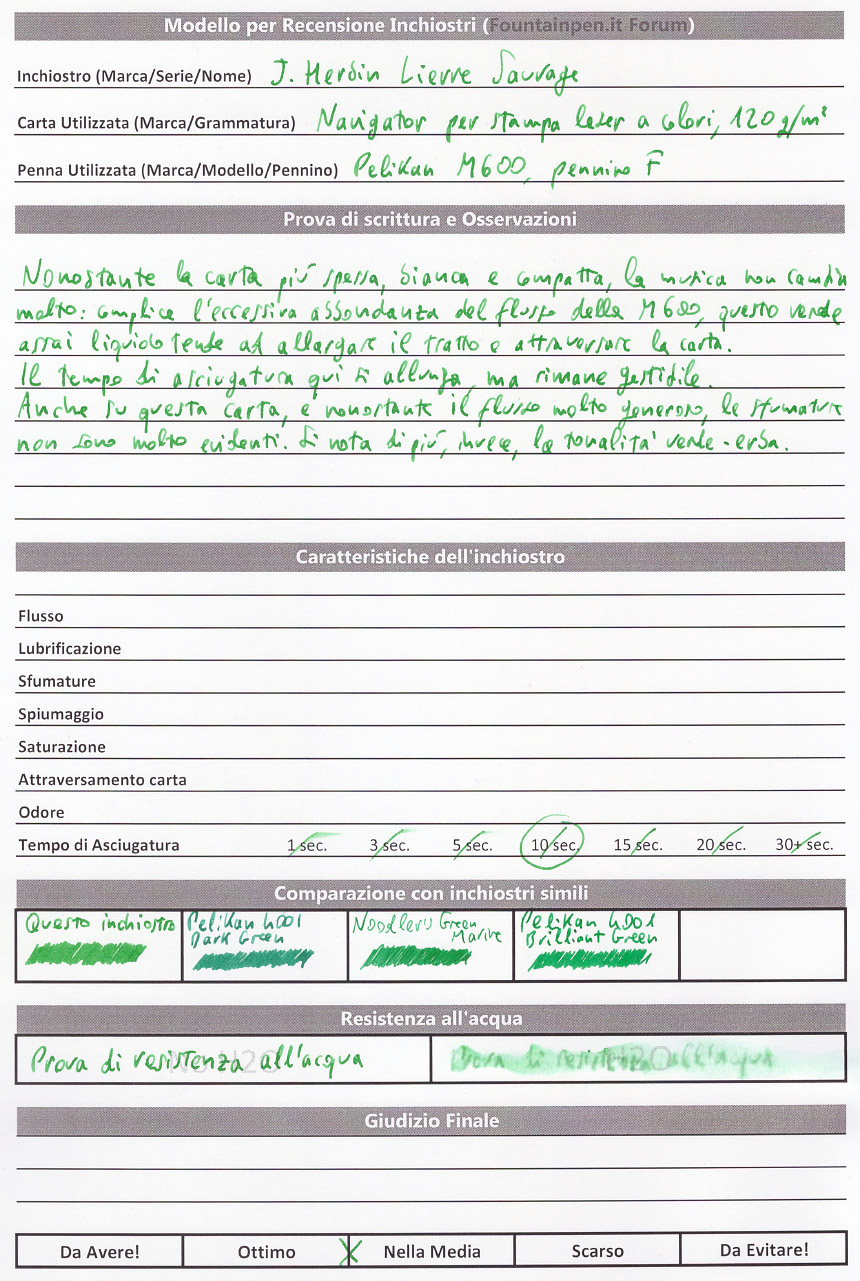 Modello per Recensione Inchiostri (Fountainpen.it Forum)
Inchiostro (Marca/Serie/Nome) J. Herbin Lierre Sauvage
Carta Utilizzata (Marca/Grammatura) Navigator per stampa laser a colori, 120 g/m²
Penna Utilizzata (Marca/Modello/Pennino) Pelikan M600, pennino F
Prova di scrittura e Osservazioni
Nonostante la carta più spessa, bianca e compatta, la musica non cambia
molto: complice l'eccessiva abbondanza del flusso della M600, questo verde
assai liquido tende ad allargare il tratto e attraversare la carta.
Il tempo di asciugatura qui si allunga, ma rimane gestibile.
Anche su questa carta, e nonostante il flusso molto generoso, le sfumature
non sono molto evidenti. Si nota di più, invece, la tonalità verde-erba.
Caratteristiche dell'inchiostro
Flusso
Lubrificazione
Sfumature
Spiumaggio
Saturazione
Attraversamento carta
Odore
Tempo di Asciugatura 1 sec. 3 sec. 5 sec. 10 sec. 15 sec. 20 sec. 30+ sec.
Comparazione con inchiostri simili
Questo inchiostro Pelikan 4001 Noodler's Green Pelikan 4001
Dark Green Marine Brilliant Green
Resistenza all'acqua
Prova di resistenza all'acqua Prova di resistenza all'acqua
No H2O H2O
Giudizio Finale
Da Avere! Ottimo X Nella Media Scarso Da Evitare!